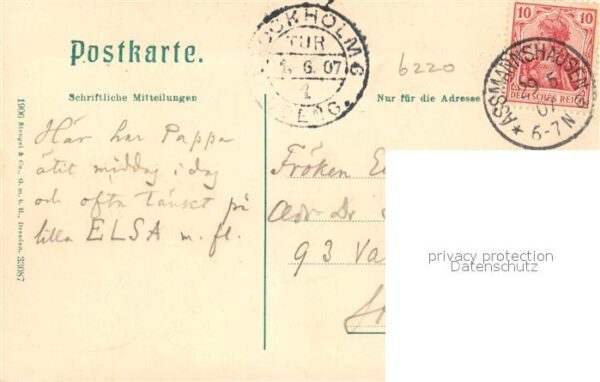 Postkarte.
STOCKHOLM 6
TUR
1. 6. 07
1
OMG.
6220
10
10
DEUTSCHES REICH
ASSMANNSHAUSEN
5
07
6-7N
Schriftliche Mitteilungen
Nur für die Adresse
Här har Pappa
ätit middag i dag
och ofta tänkt på
lilla ELSA m. fl.
Fröken
Adr Dr
93 Va
1906 Stengel & Co., G. m. b. H., Dresden. 33087
privacy protection
Datenschutz